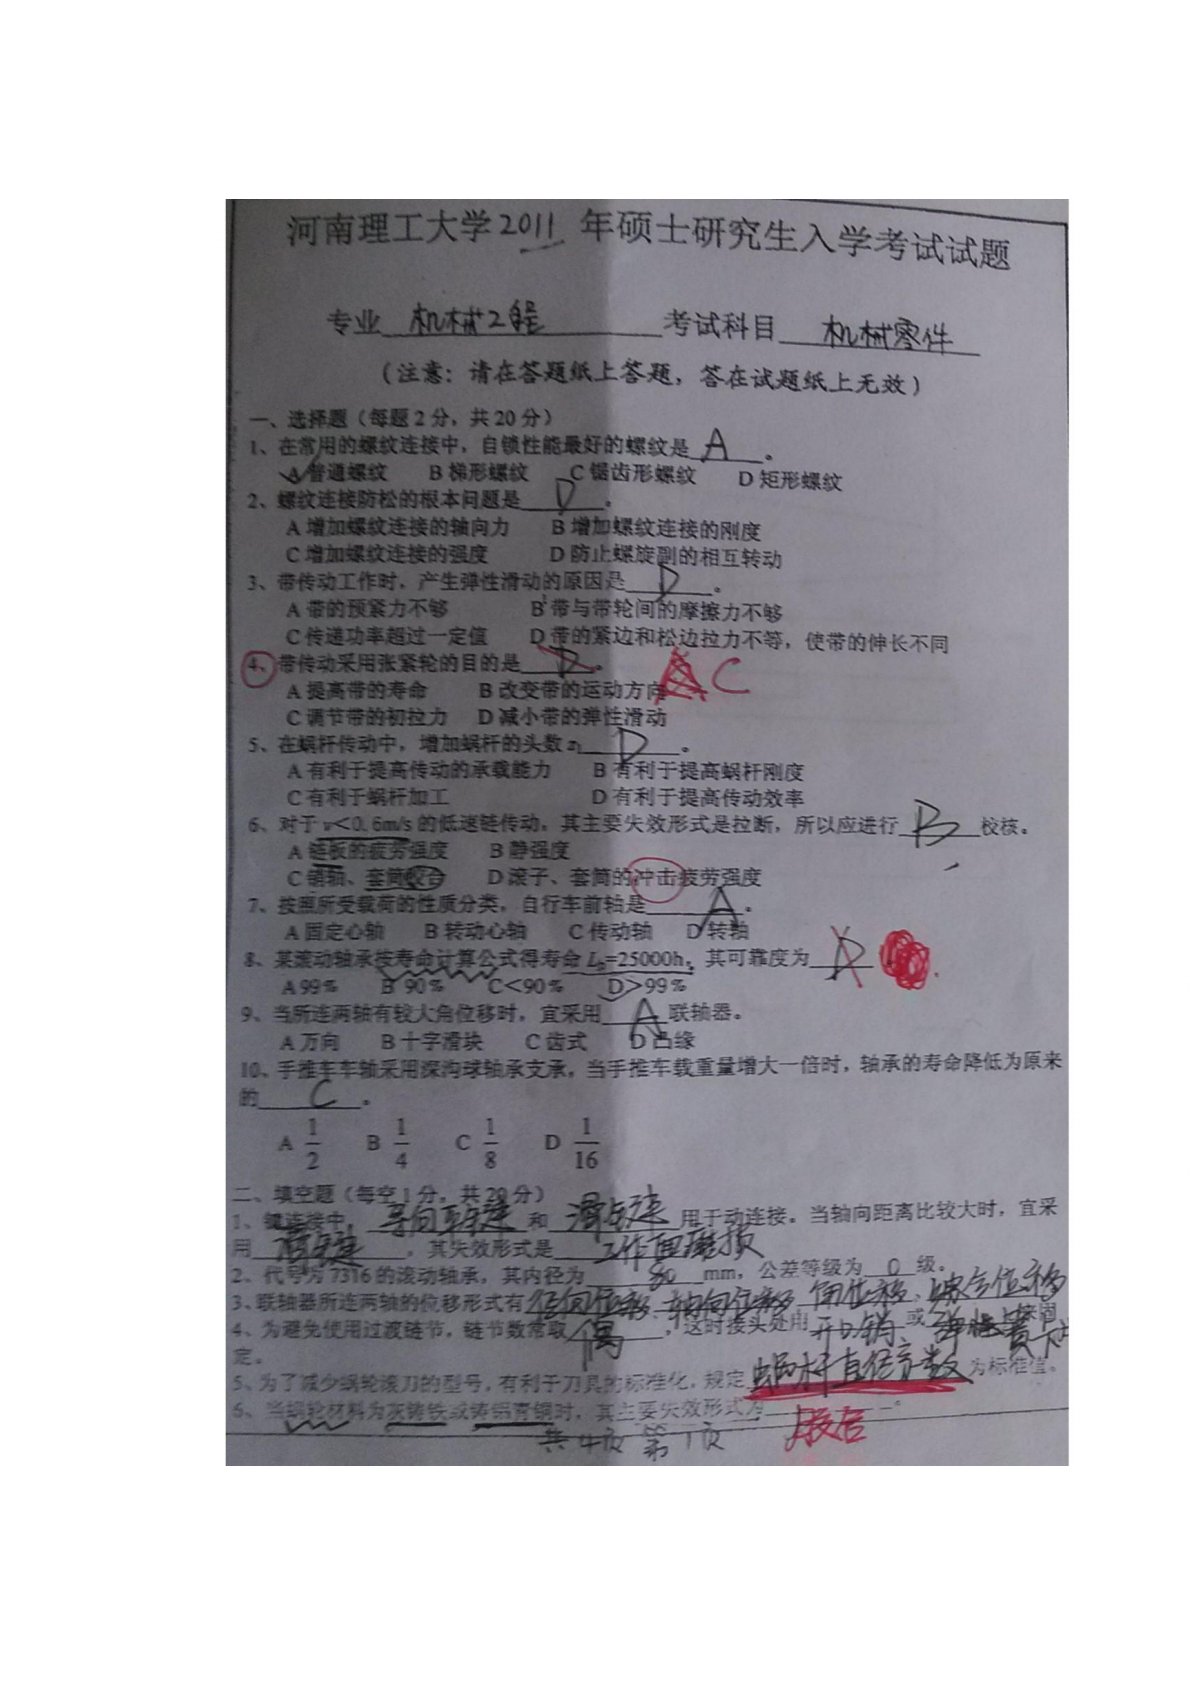 河南理工大学2011 年硕士研究生入学考试试题
专业 机械工程 考试科目 机械零件
(注意：请在答题纸上答题，答在试题纸上无效)
一、选择题（每题2分，共20分）
1、在常用的螺纹连接中，自锁性能最好的螺纹是 A 。
A 普通螺纹 B 梯形螺纹 C 锯齿形螺纹 D 矩形螺纹
2、螺纹连接防松的根本问题是 D 。
A 增加螺纹连接的轴向力 B 增加螺纹连接的刚度
C 增加螺纹连接的强度 D 防止螺旋副的相互转动
3、带传动工作时，产生弹性滑动的原因是 D 。
A 带的预紧力不够 B 带与带轮间的摩擦力不够
C 传递功率超过一定值 D 带的紧边和松边拉力不等，使带的伸长不同
4、带传动采用张紧轮的目的是 D 。 C
A 提高带的寿命 B 改变带的运动方向
C 调节带的初拉力 D 减小带的弹性滑动
5、在蜗杆传动中，增加蜗杆的头数 z₁ D 。
A 有利于提高传动的承载能力 B 有利于提高蜗杆刚度
C 有利于蜗杆加工 D 有利于提高传动效率
6、对于 v＜0.6m/s 的低速链传动，其主要失效形式是拉断，所以应进行 B 校核。
A 链板的疲劳强度 B 静强度
C 销轴、套筒胶合 D 滚子、套筒的冲击疲劳强度
7、按照所受载荷的性质分类，自行车前轴是 A 。
A 固定心轴 B 转动心轴 C 传动轴 D 转轴
8、某滚动轴承按寿命计算公式得寿命 Lh=25000h，其可靠度为 D 。
A 99% B 90% C＜90% D＞99%
9、当所连两轴有较大角位移时，宜采用 A 联轴器。
A 万向 B 十字滑块 C 齿式 D 凸缘
10、手推车车轴采用深沟球轴承支承，当手推车载重量增大一倍时，轴承的寿命降低为原来
的 C 。
A 1/2 B 1/4 C 1/8 D 1/16
二、填空题（每空1分，共20分）
1、键连接中， 导向平键 和 滑键 用于动连接。当轴向距离比较大时，宜采
用 滑键 ，其失效形式是 工作面磨损
2、代号为 7316 的滚动轴承，其内径为 80 mm，公差等级为 0 级。
3、联轴器所连两轴的位移形式有 径向位移 、轴向位移 、角位移 、综合位移
4、为避免使用过渡链节，链节数常取 偶 ，这时接头处用 开口销 或 弹性 卡 来固
定。
5、为了减少蜗轮滚刀的型号，有利于刀具的标准化，规定 蜗杆直径系数 为标准值。
6、当蜗轮材料为灰铸铁或铸铝青铜时，其主要失效形式为 。
共 4页 第 1页 胶合